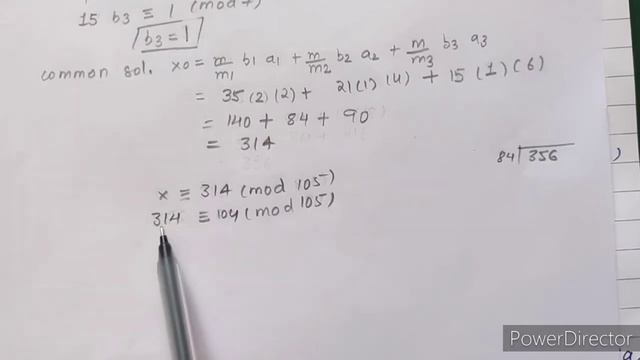 15 b3 ≡ 1 (mod 7)
b3 = 1
common sol. x0 = m/m1 b1 a1 + m/m2 b2 a2 + m/m3 b3 a3
= 35 (2) (2) + 21(1) (4) + 15 (1) (6)
= 140 + 84 + 90
= 314
84 356
x ≡ 314 (mod 105)
314 ≡ 104 (mod 105)
POWERED BY
PowerDirector